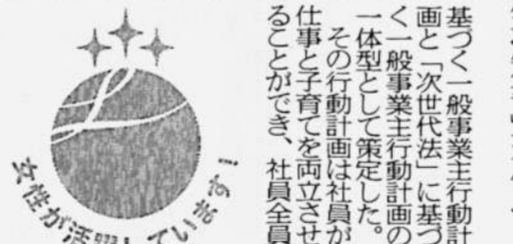 基づく一般事業主行動計
画と「次世代法」に基づ
く一般事業主行動計画の
一体型として策定した。
その行動計画は社員が
仕事と子育てを両立させ
ることができ、社員全員
女性が活躍しています!